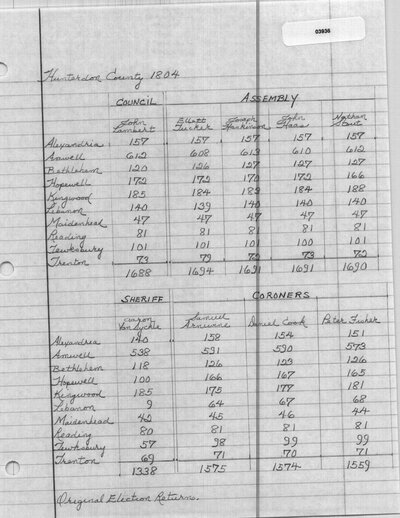 03936
Hunterdon County 1804
COUNCIL ASSEMBLY
John Lambert Elliott Tucker Joseph Hankinson John Haas Nathan Stout
Alexandria 157 157 157 157 157
Amwell 612 608 613 610 612
Bethlehem 120 126 127 127 127
Hopewell 172 172 170 172 166
Kingwood 185 184 189 184 188
Lebanon 140 139 140 140 140
Maidenhead 47 47 47 47 47
Reading 81 81 81 81 81
Tewksbury 101 101 101 100 101
Trenton 73 79 72 73 72
1688 1694 1691 1691 1690
SHERIFF CORONERS
Aaron Van Syckle Samuel Arnwine Daniel Cook Peter Fisher
Alexandria 140 158 154 151
Amwell 538 591 590 573
Bethlehem 118 126 123 126
Hopewell 100 166 167 165
Kingwood 185 175 177 181
Lebanon 9 64 67 68
Maidenhead 42 45 46 44
Reading 80 81 81 81
Tewksbury 57 98 99 99
Trenton 69 71 70 71
1338 1575 1574 1559
Original Election Returns.